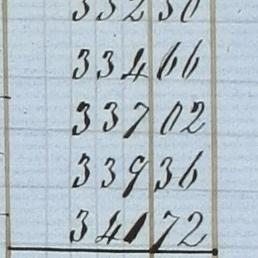 332 30
334 66
337 02
339 36
341 72